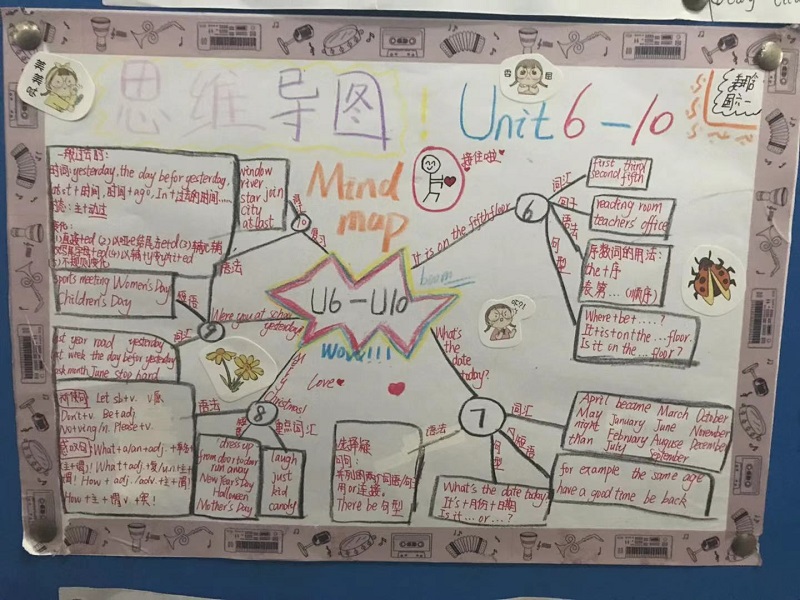 思维导图! Unit 6-10
Mind
map
接住啦
U6-U10
boom
wow!!!
Love
It is on the fifth floor
6
词汇
first third
second fifth
句子
reading room
teachers' office
语法
序数词的用法:
the+序
表第…(顺序)
句型
Where+be+....?
It is+on+the...floor.
Is it on the...floor?
What's
the
date
today?
7
词汇
April become March October
May January June November
night February Auguse December
than July September
短语
for example the same age
have a good time be back
句型
What's the date today?
It's+月份+日期
Is it...or...?
语法
选择疑
问句:
并列的两个词语/句
用or连接。
There be 句型
Christmas!
8
重点词汇
laugh
just
kid
candy
dress up
from door to door
run away
New Year's Day
Halloween
Mother's Day
语法
祈使句 Let sb+v. V原
Don't+v. Be+adj.
No+ving/n. Please+v.
感叹句: What+a/an+adj.
How+主+谓
Were you at school
yesterday?
9
词汇
last year road yesterday
last week the day befor yesterday
last month June stop hard
短语
Sports meeting Women's Day
Children's Day
语法
一般过去时:
时间: yesterday, the day befor yesterday,
last+时间, 时间+ago, In+过去的时间……
10
window
river
star join
city
at last